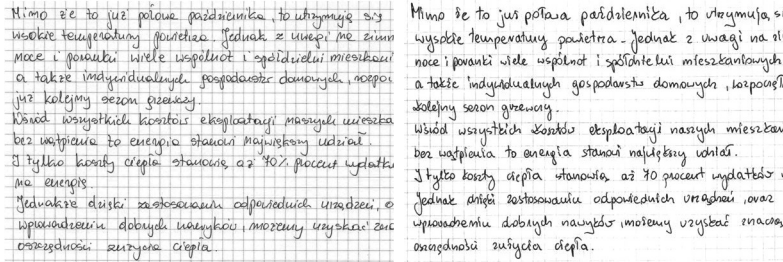 Mimo że to już połowa października, to utrzymują się
wsokie temperatury powietrza. Jednak z uwagi na zimn
noce i poranki wiele wspólnot i spółdzielni mieszkani
a także indywidualnych gospodarstw domowych, rozpoc
już kolejny sezon grzewczy.
Wśród wszystkich kosztów eksploatacji naszych mieszka
bez wątpienia to energia stanowi największy udział.
I tylko koszty ciepła stanowią aż 70% procent wydatk
na energię.
Jednakże dzięki zastosowaniu odpowiednich urządzeń, o
wprowadzeniu dobrych nawyków, możemy uzyskać znac
oszczędności zużycia ciepła.
Mimo że to już połowa października, to utrzymują s
wysokie temperatury powietrza. Jednak z uwagi na zi
noce i poranki wiele wspólnot i spółdzielni mieszkaniowych
a także indywidualnych gospodarstw domowych, rozpoczęł
kolejny sezon grzewczy.
Wśród wszystkich kosztów eksploatacji naszych mieszkan
bez wątpienia to energia stanowi największy udział.
I tylko koszty ciepła stanowią aż 70 procent wydatków
Jednak dzięki zastosowaniu odpowiednich urządzeń, oraz
wprowadzeniu dobrych nawyków, możemy uzyskać znaczą
oszczędności zużycia ciepła.